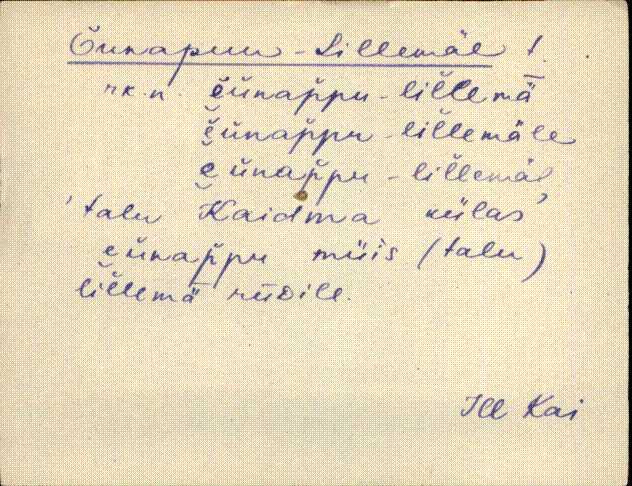 Õunapuu-Lillemäe t.
rk.n. ĕŭnappu-lillemä̅
ĕŭnappu-lillemäle
ĕŭnappu-lillemäl
'talu Kaidma külas'
ĕŭnappu müis (talu)
lillemä̅
Ill Kai